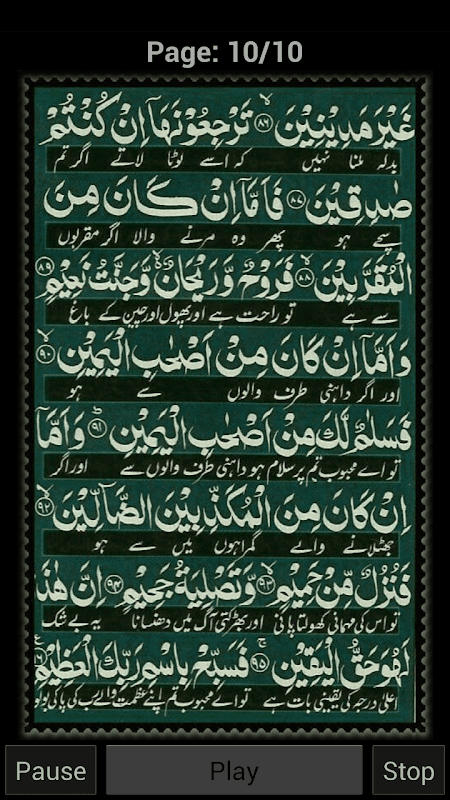 Page: 10/10
غَيْرَ مَدِيْنِيْنَ ۙ﴿۸۶﴾ تَرْجِعُوْنَهَاۤ اِنْ كُنْتُمْ
بدلہ ملنا نہیں کہ اسے لوٹا لاتے اگر تم
صٰدِقِيْنَ ﴿۸۷﴾ فَاَمَّاۤ اِنْ كَانَ مِنَ
سچے ہو پھر وہ مرنے والا اگر مقربوں
الْمُقَرَّبِيْنَ ۙ﴿۸۸﴾ فَرَوْحٌ وَّرَيْحَانٌ ۙ۬ وَّجَنَّتُ نَعِيْمٍ ﴿۸۹﴾
سے ہے تو راحت ہے اور پھول اور چین کے باغ
وَ اَمَّاۤ اِنْ كَانَ مِنْ اَصْحٰبِ الْيَمِيْنِ ۙ﴿۹۰﴾
اور اگر داہنی طرف والوں سے ہو
فَسَلٰمٌ لَّكَ مِنْ اَصْحٰبِ الْيَمِيْنِ ؕ﴿۹۱﴾ وَ اَمَّاۤ
تو اے محبوب تم پر سلام ہو داہنی طرف والوں سے اور اگر
اِنْ كَانَ مِنَ الْمُكَذِّبِيْنَ الضَّآلِّيْنَ ۙ﴿۹۲﴾
جھٹلانے والے گمراہوں میں سے ہو
فَنُزُلٌ مِّنْ حَمِيْمٍ ۙ﴿۹۳﴾ وَّ تَصْلِيَةُ جَحِيْمٍ ﴿۹۴﴾ اِنَّ هٰذَا
تو اس کی مہمانی کھولتا پانی اور بھڑکتی آگ میں دھنسانا یہ بے شک
لَهُوَ حَقُّ الْيَقِيْنِ ۚ﴿۹۵﴾ فَسَبِّحْ بِاسْمِ رَبِّكَ الْعَظِيْمِ
اعلیٰ درجہ کی یقینی بات ہے تو اے محبوب تم اپنے عظمت والے رب کی پاکی بولو
Pause Play Stop